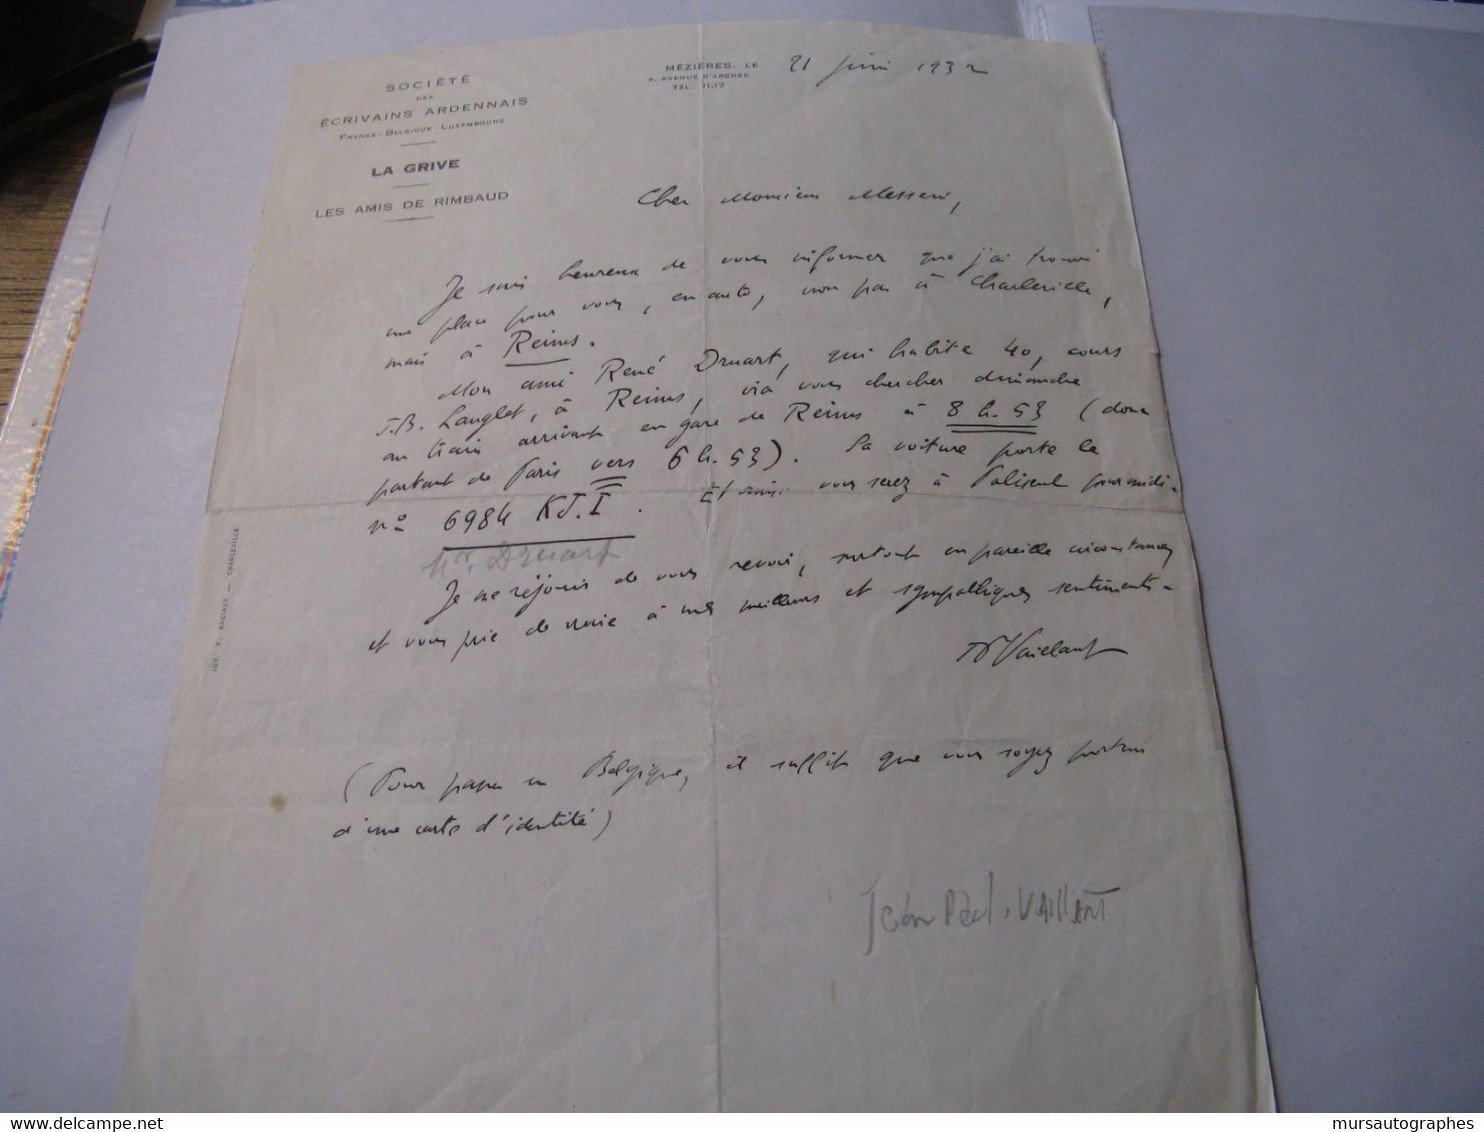 SOCIÉTÉ
DES
ÉCRIVAINS ARDENNAIS
FRANCE - BELGIQUE - LUXEMBOURG
LA GRIVE
LES AMIS DE RIMBAUD
MÉZIÈRES, LE 21 juin 1932
9, AVENUE D'ARCHES
TÉL. 11.17
Cher Monsieur Messein,
Je suis heureux de vous informer que j'ai trouvé
une place pour vous, en auto, non pas à Charleville,
mais à Reims.
Mon ami René Druart, qui habite 40, cours
J.B. Langlet, à Reims, ira vous chercher dimanche
au train arrivant en gare de Reims à 8 h. 53 (donc
partant de Paris vers 6 h. 53). Sa voiture porte le
nº 6984 KJ.I. Et ainsi vous serez à Paliseul pour midi.
Mr. Druart
Je me réjouis de vous revoir, surtout en pareille circonstance,
et vous prie de croire à mes meilleurs et sympathiques sentiments.
JPVaillant
(Pour passer en Belgique, il suffit que vous soyez porteur
d'une carte d'identité)
Jean Paul. VAILLANT
IMP. P. ANCIAUX — CHARLEVILLE
www.delcampe.net
mursautographes